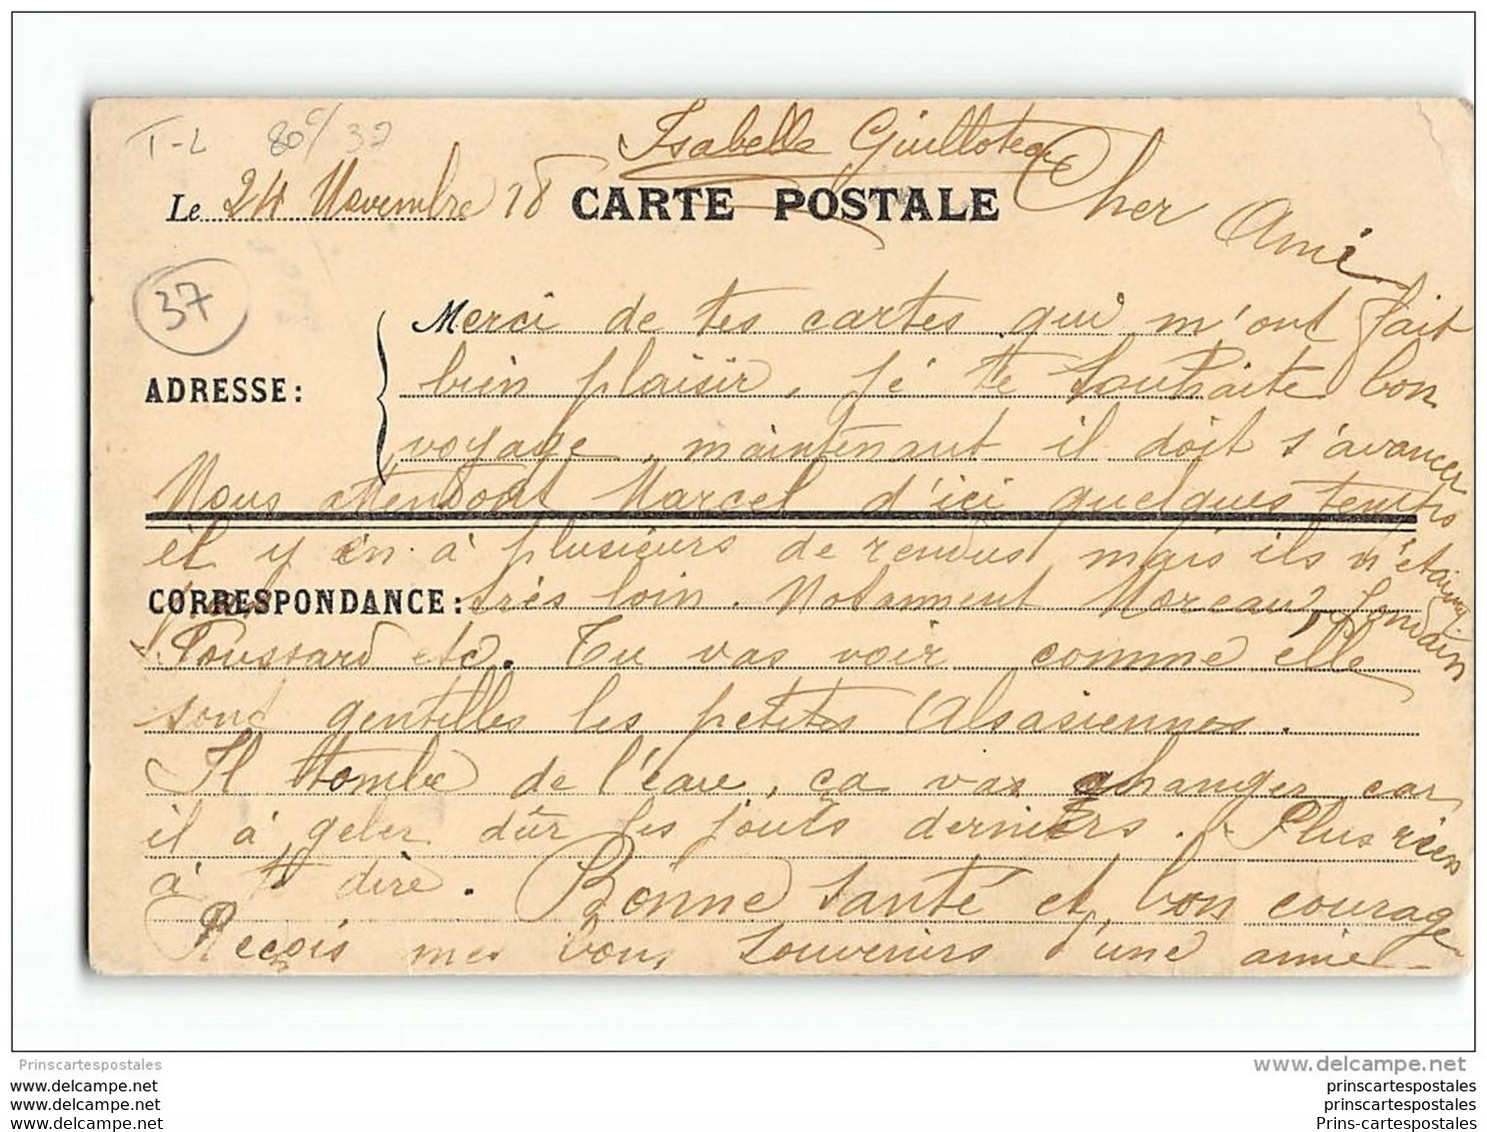 T-L 80c/37
Isabelle Guilloteau
Le 24 Novembre 18 CARTE POSTALE Cher Ami
37
Merci de tes cartes qui m'ont fait
ADRESSE: bien plaisir, je te souhaite bon
voyage, maintenant il doit s'avancer
Nous attendons Marcel d'ici quelques temps
il y en à plusieurs de rendus mais ils n'étaient
CORRESPONDANCE: pas très loin. Notamment Moreau,
Toussard etc. Tu vas voir comme elle
sont gentilles les petites Alsasiennes.
Il tombe de l'eau, ça vas changer car
il à geler dûr les jours derniers. Plus rien
à te dire. Bonne santé et bon courage
Reçois mes bons souvenirs d'une amie
Prinscartespostales
www.delcampe.net
www.delcampe.net
www.delcampe.net
www.delcampe.net
prinscartespostales
prinscartespostales
Prins-cartespostales